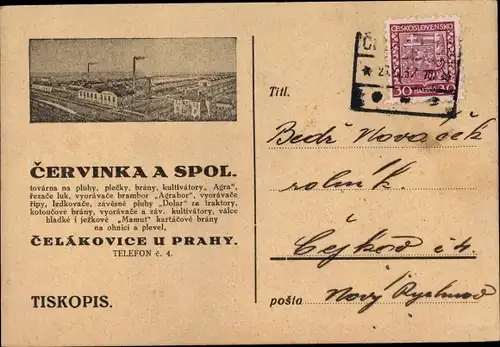 ČESKOSLOVENSKO
30 HALÉŘŮ 30
Titl.
Bedř Novaček
rolník
ČERVINKA A SPOL.
továrna na pluhy, plečky, brány, kultivátory „Agra",
řezače luk, vyorávače brambor „Agrabor", vyorávače
řípy, lždkovače, závěsné pluhy „Dolar" za traktory,
kotoučové brány, vyorávače a záv. kultivátory, válce
hladké i ježkové „Mamut" kartáčové brány
na ohnici a plevel,
ČELÁKOVICE U PRAHY.
TELEFON č. 4.
Čejkov č 4
TISKOPIS.
pošta Nový Rychnov